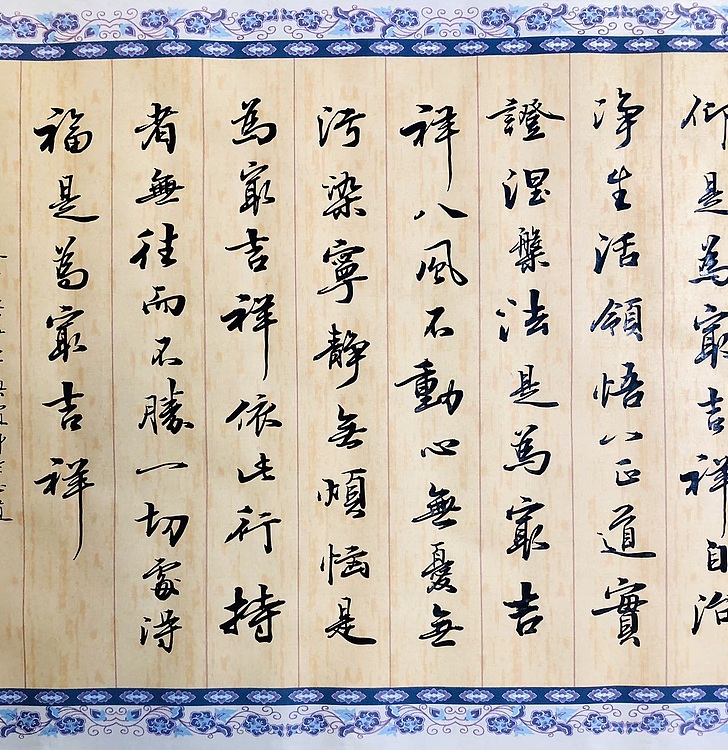 仰是為最吉祥自治
淨生活領悟八正道實
證涅槃法是為最吉
祥八風不動心無憂無
污染寧靜無煩惱是
為最吉祥依此行持
者無往而不勝一切處得
福是為最吉祥